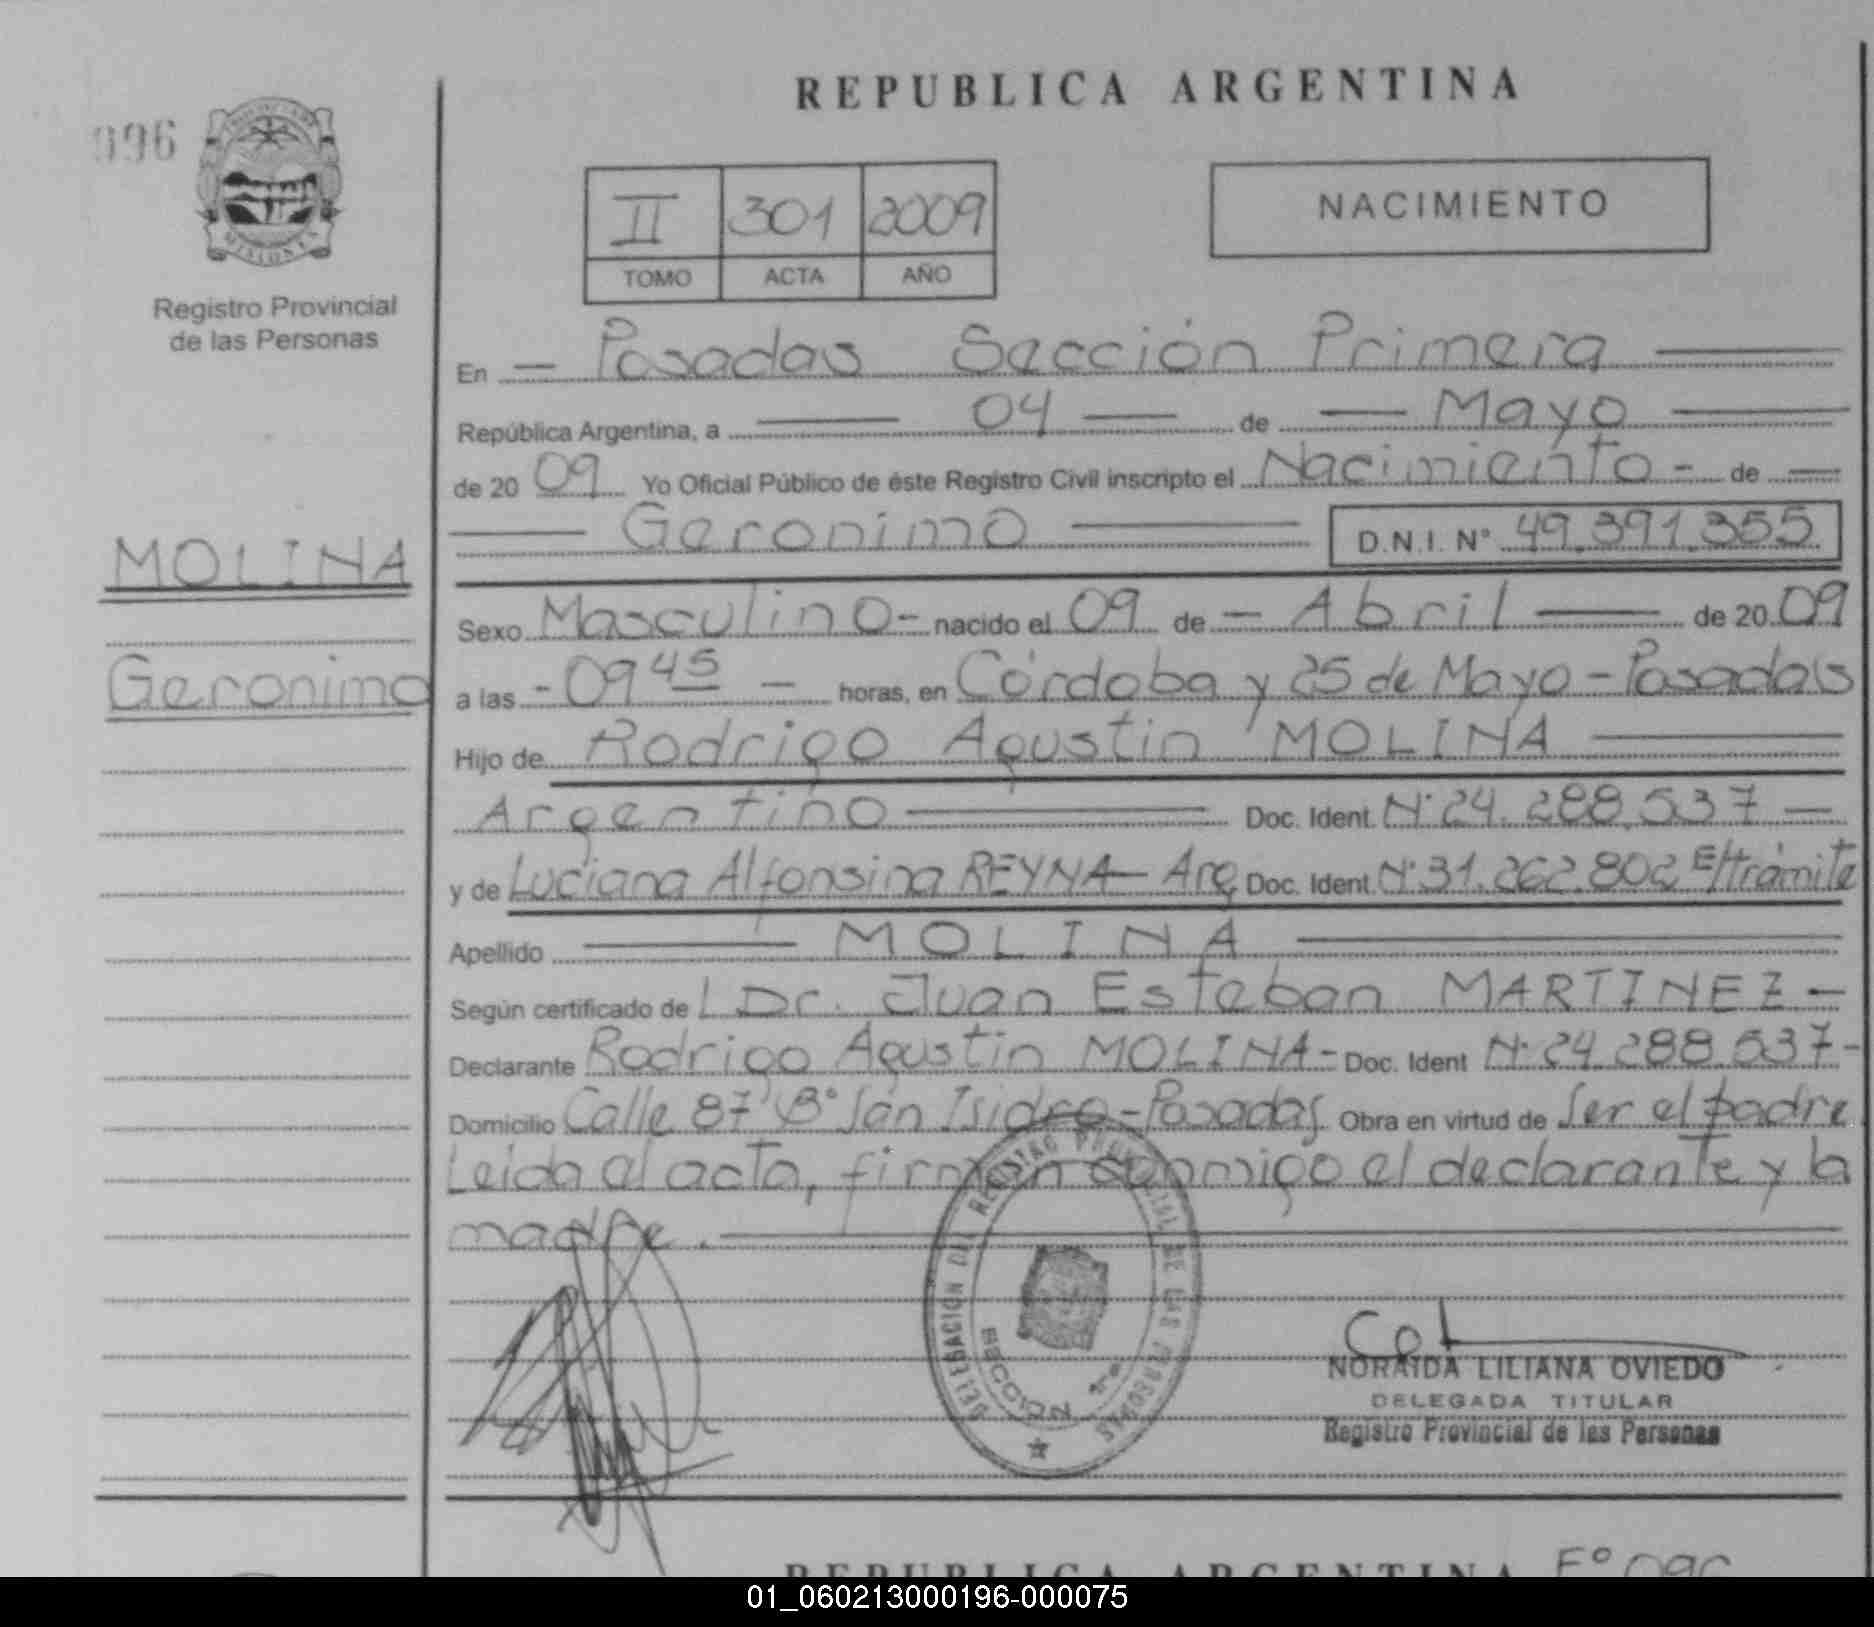 REPUBLICA ARGENTINA
096
MISIONES
Registro Provincial
de las Personas
II 301 2009
TOMO ACTA AÑO
NACIMIENTO
En — Posadas Sección Primera
República Argentina, a 04 de Mayo
de 20 09 Yo Oficial Público de éste Registro Civil inscripto el Nacimiento - de
Geronimo D.N.I. N° 49.391.355
MOLINA
Geronimo
Sexo Masculino - nacido el 09 de — Abril — de 20 09
a las - 09 45 — horas, en Córdoba y 25 de Mayo - Posadas
Hijo de Rodrigo Agustin MOLINA
Argentino — Doc. Ident. N° 24.288.537 —
y de Luciana Alfonsina REYNA — Arg. Doc. Ident. N° 31.262.802 E/trámite
Apellido — MOLINA
Según certificado de l Dr. Juan Esteban MARTINEZ —
Declarante Rodrigo Agustin MOLINA - Doc. Ident N° 24.288.537 -
Domicilio Calle 87 B° San Isidro - Posadas Obra en virtud de ser el padre
Leida el acta, firman conmigo el declarante y la
madre.
DELEGACION DEL REGISTRO PROVINCIAL DE LAS PERSONAS
SECCION
NORAIDA LILIANA OVIEDO
DELEGADA TITULAR
Registro Provincial de las Personas
REPUBLICA ARGENTINA
01_060213000196-000075